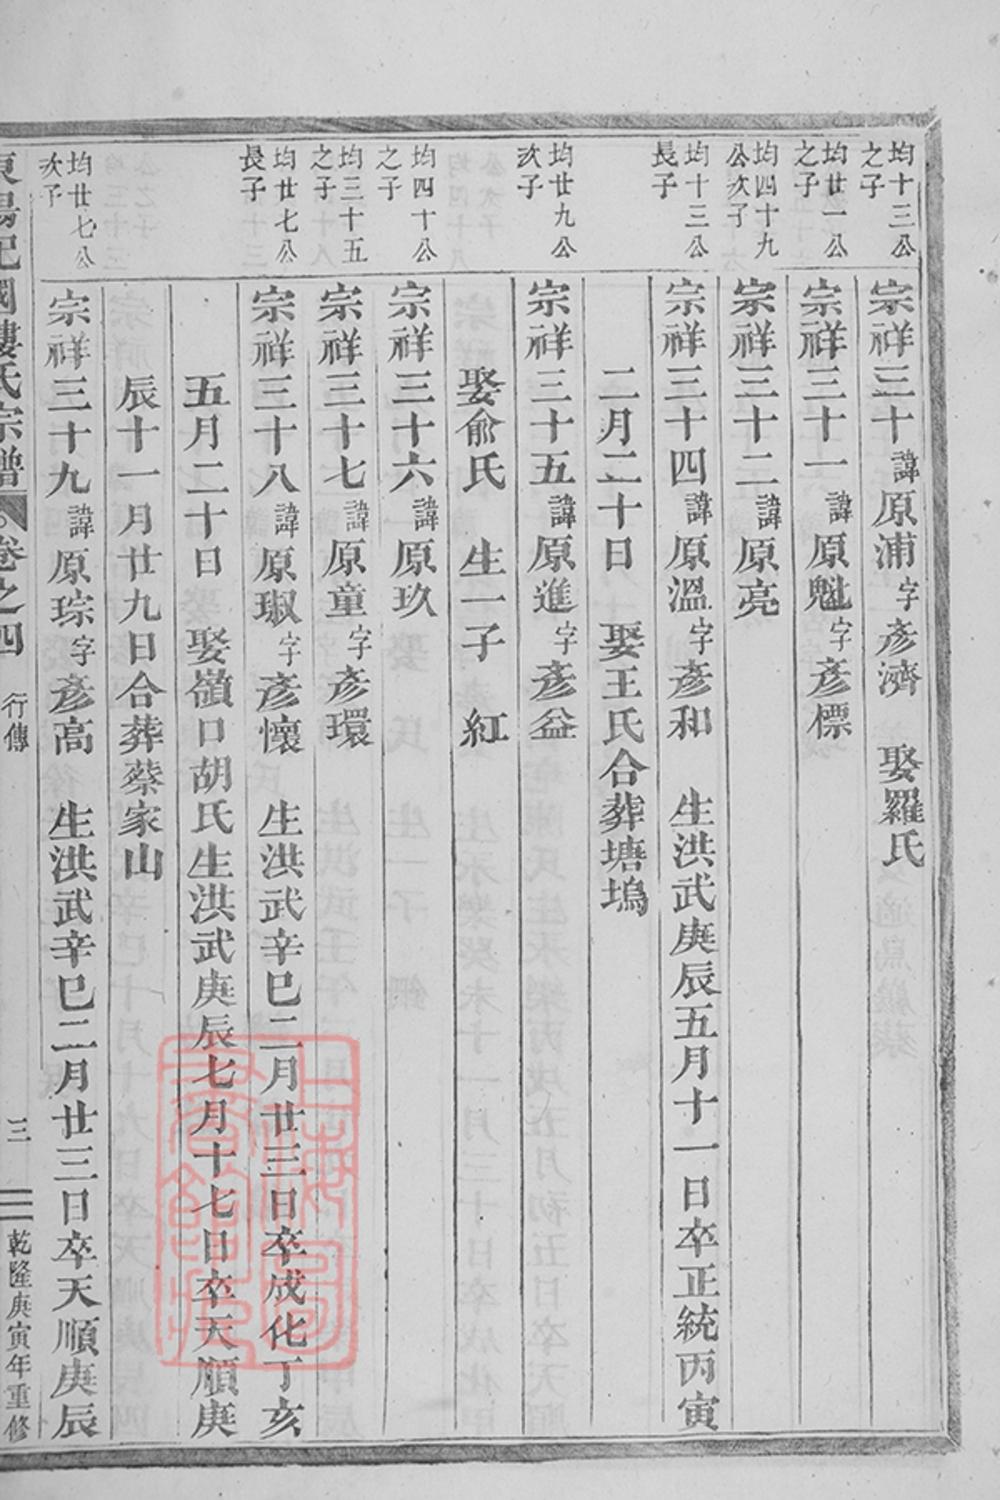 均十三公之子
宗祥三十諱原浦字彥濟　娶羅氏
均廿一公之子
宗祥三十一諱原魁字彥標
均四十九公次子
宗祥三十二諱原亮
均十三公長子
宗祥三十四諱原溫字彥和　生洪武庚辰五月十一日卒正統丙寅
二月二十日　娶王氏合葬塘塢
均廿九公次子
宗祥三十五諱原進字彥益
娶俞氏　生一子　紅
均四十公之子
宗祥三十六諱原玖
均三十五之子
宗祥三十七諱原童字彥環
均廿七公長子
宗祥三十八諱原琡字彥懷　生洪武辛巳二月廿三日卒成化丁亥
五月二十日　娶嶺口胡氏生洪武庚辰七月十七日卒天順庚
辰十一月廿九日合葬蔡家山
均廿七公次子
宗祥三十九諱原琮字彥高　生洪武辛巳二月廿三日卒天順庚辰
東陽杞國樓氏宗譜　卷之四　行傳　三　乾隆庚寅年重修
上海圖書館藏